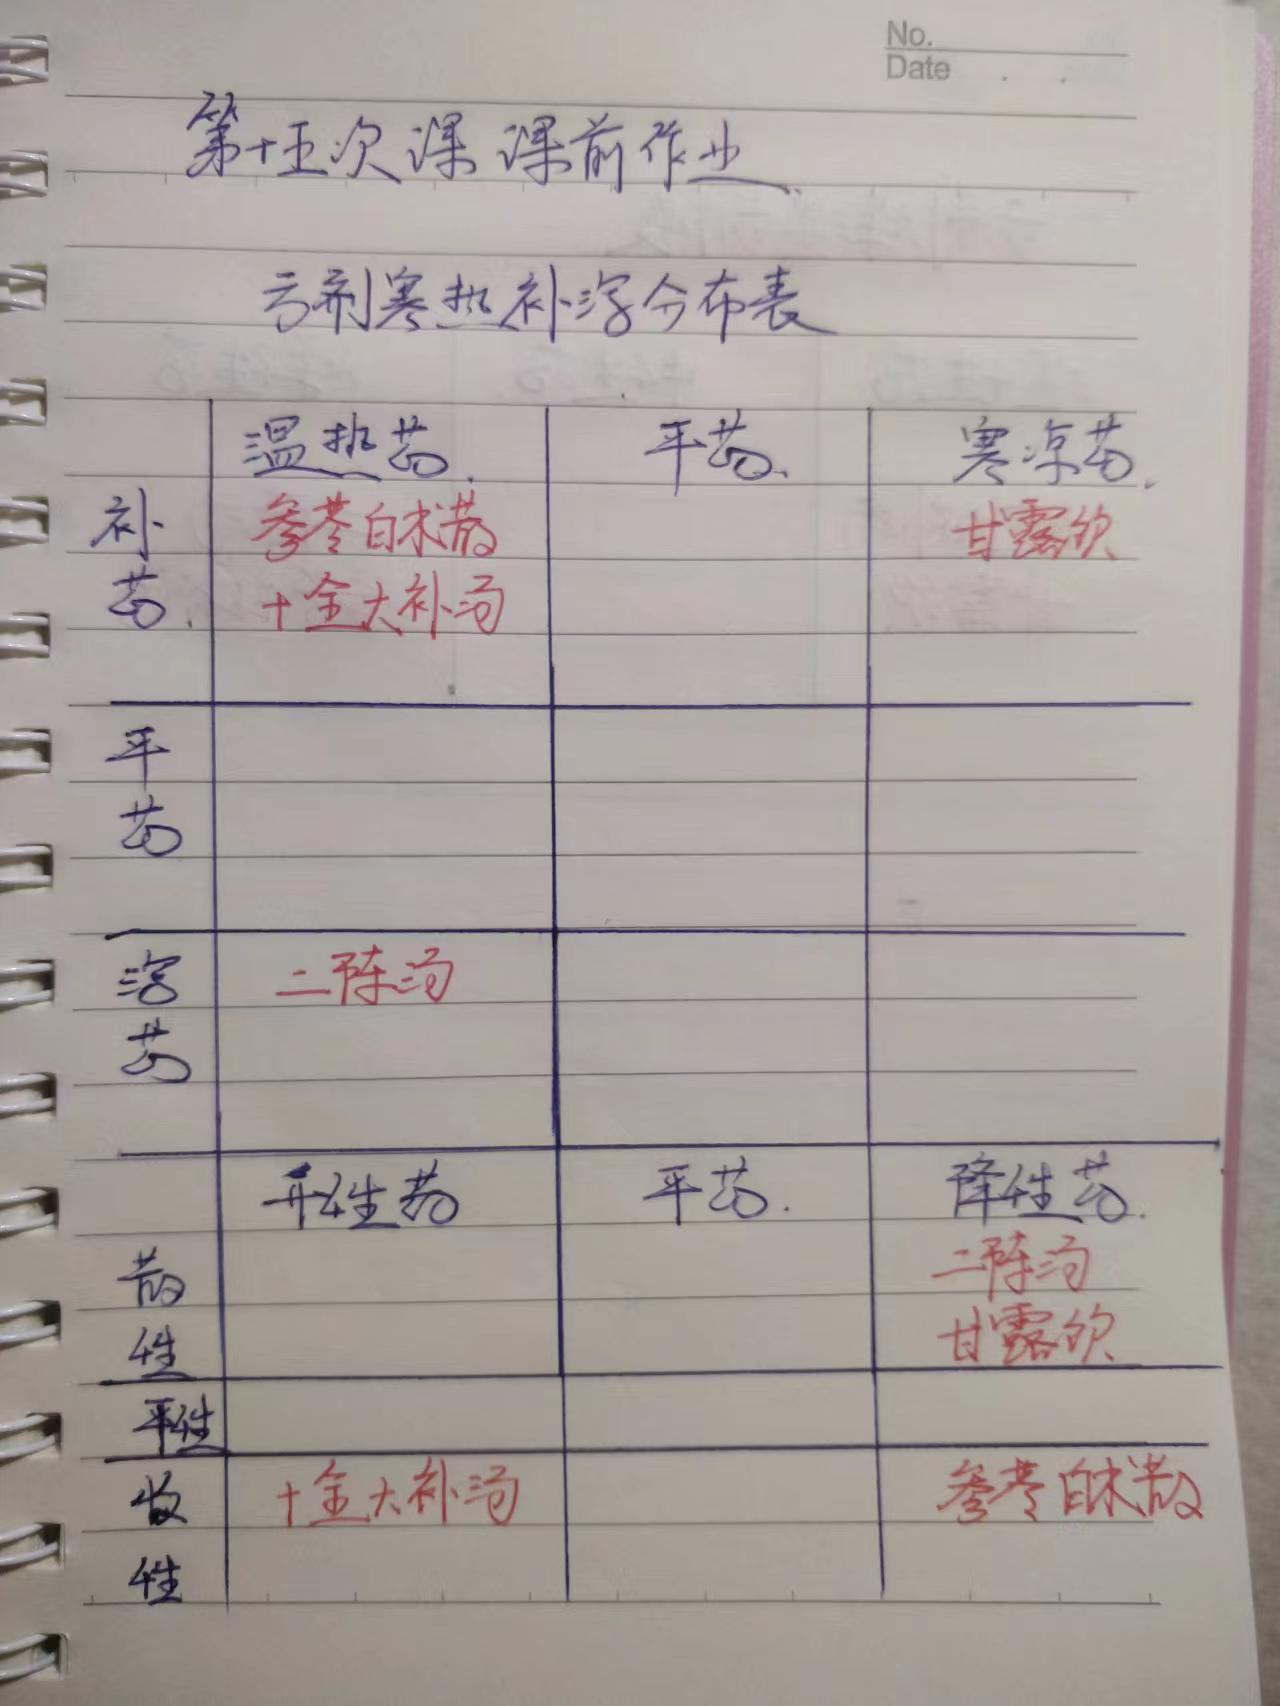 No.
Date
第十五次课 课前作业
方剂寒热补泻分布表
温热药. 平药. 寒凉药.
补药. 参苓白术散 甘露饮
十全大补汤
平药
泻药 二陈汤
升性药 平药. 降性药.
散性 二陈汤
甘露饮
平性
收性 十全大补汤 参苓白术散